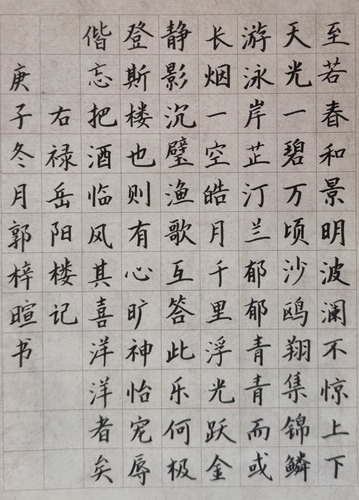 至若春和景明波澜不惊上下
天光一碧万顷沙鸥翔集锦鳞
游泳岸芷汀兰郁郁青青而或
长烟一空皓月千里浮光跃金
静影沉璧渔歌互答此乐何极
登斯楼也则有心旷神怡宠辱
偕忘把酒临风其喜洋洋者矣
右禄岳阳楼记
庚子冬月郭梓暄书